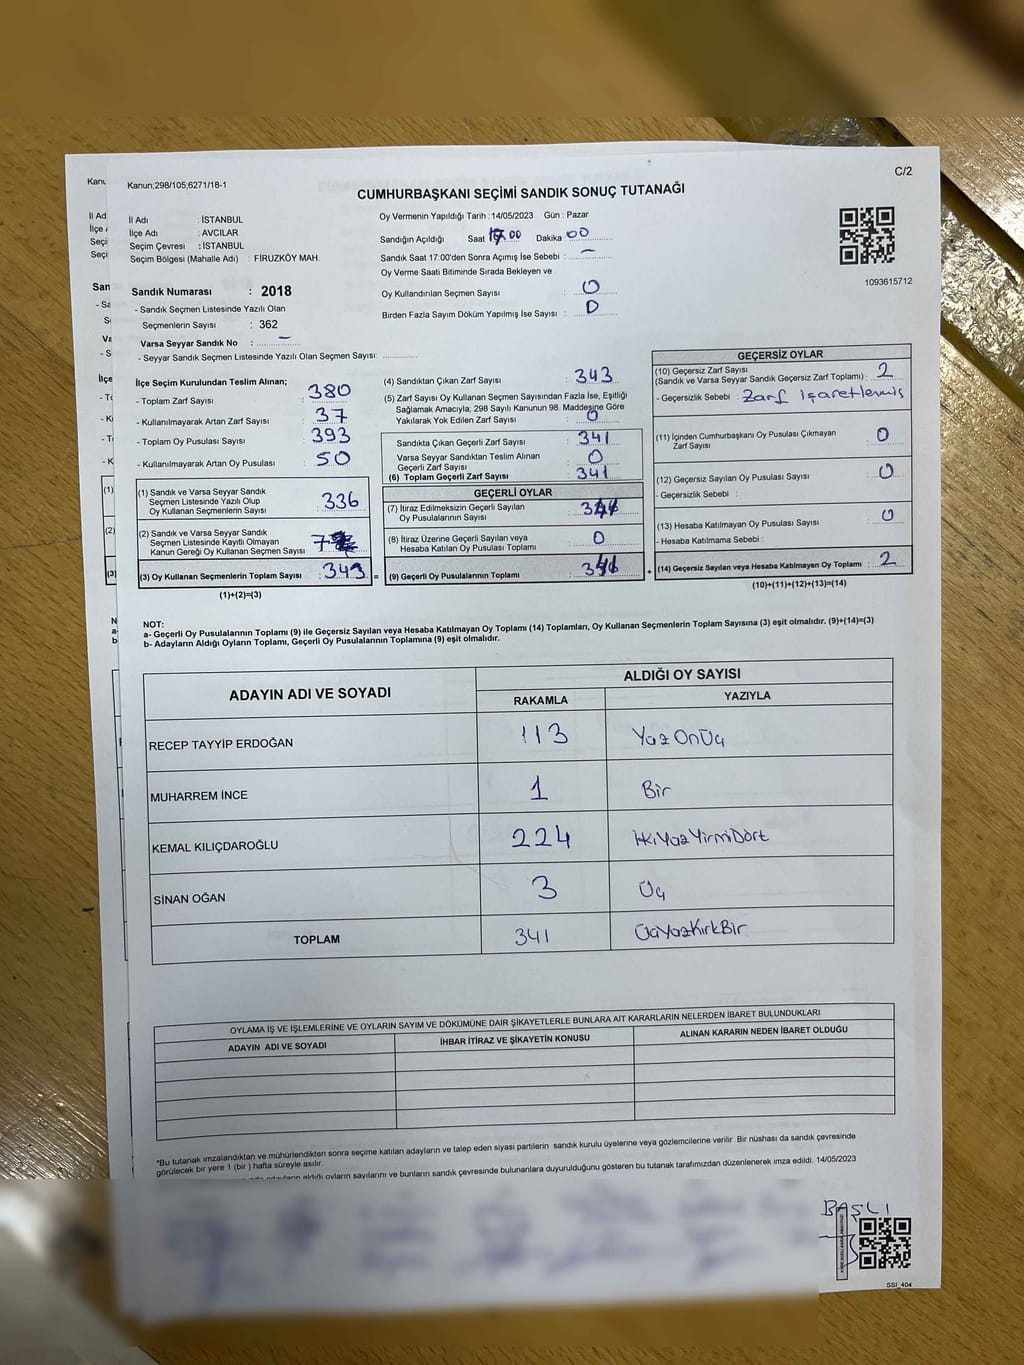 C/2
Kanun;298/105;6271/18-1
CUMHURBAŞKANI SEÇİMİ SANDIK SONUÇ TUTANAĞI
İl Adı : İSTANBUL
İlçe Adı : AVCILAR
Seçim Çevresi : İSTANBUL
Seçim Bölgesi (Mahalle Adı) : FİRUZKÖY MAH.
Oy Vermenin Yapıldığı Tarih :14/05/2023 Gün : Pazar
Sandığın Açıldığı Saat 17.00 Dakika 00
Sandık Saat 17:00'den Sonra Açımış İse Sebebi : –
Oy Verme Saati Bitiminde Sırada Bekleyen ve
Oy Kullandırılan Seçmen Sayısı : 0
Birden Fazla Sayım Döküm Yapılmış İse Sayısı : 0
1093615712
Sandık Numarası : 2018
- Sandık Seçmen Listesinde Yazılı Olan
Seçmenlerin Sayısı : 362
Varsa Seyyar Sandık No : –
- Seyyar Sandık Seçmen Listesinde Yazılı Olan Seçmen Sayısı:
İlçe Seçim Kurulundan Teslim Alınan;
- Toplam Zarf Sayısı : 380
- Kullanılmayarak Artan Zarf Sayısı : 37
- Toplam Oy Pusulası Sayısı : 393
- Kullanılmayarak Artan Oy Pusulası : 50
(1) Sandık ve Varsa Seyyar Sandık
Seçmen Listesinde Yazılı Olup
Oy Kullanan Seçmenlerin Sayısı : 336
(2) Sandık ve Varsa Seyyar Sandık
Seçmen Listesinde Kayıtlı Olmayan
Kanun Gereği Oy Kullanan Seçmen Sayısı : 7
(3) Oy Kullanan Seçmenlerin Toplam Sayısı : 343 =
(1)+(2)=(3)
(4) Sandıktan Çıkan Zarf Sayısı : 343
(5) Zarf Sayısı Oy Kullanan Seçmen Sayısından Fazla İse, Eşitliği
Sağlamak Amacıyla; 298 Sayılı Kanunun 98. Maddesine Göre
Yakılarak Yok Edilen Zarf Sayısı : 0
Sandıkta Çıkan Geçerli Zarf Sayısı : 341
Varsa Seyyar Sandıktan Teslim Alınan
Geçerli Zarf Sayısı : 0
(6) Toplam Geçerli Zarf Sayısı : 341
GEÇERLİ OYLAR
(7) İtiraz Edilmeksizin Geçerli Sayılan
Oy Pusulalarının Sayısı :
(8) İtiraz Üzerine Geçerli Sayılan veya
Hesaba Katılan Oy Pusulası Toplamı : 0
(9) Geçerli Oy Pusulalarının Toplamı : +
GEÇERSİZ OYLAR
(10) Geçersiz Zarf Sayısı : 2
(Sandık ve Varsa Seyyar Sandık Geçersiz Zarf Toplamı)
- Geçersizlik Sebebi : Zarf İşaretlemiş
(11) İçinden Cumhurbaşkanı Oy Pusulası Çıkmayan
Zarf Sayısı : 0
(12) Geçersiz Sayılan Oy Pusulası Sayısı : 0
- Geçersizlik Sebebi :
(13) Hesaba Katılmayan Oy Pusulası Sayısı : 0
- Hesaba Katılmama Sebebi :
(14) Geçersiz Sayılan veya Hesaba Katılmayan Oy Toplamı : 2
(10)+(11)+(12)+(13)=(14)
NOT:
a- Geçerli Oy Pusulalarının Toplamı (9) ile Geçersiz Sayılan veya Hesaba Katılmayan Oy Toplamı (14) Toplamları, Oy Kullanan Seçmenlerin Toplam Sayısına (3) eşit olmalıdır. (9)+(14)=(3)
b- Adayların Aldığı Oyların Toplamı, Geçerli Oy Pusulalarının Toplamına (9) eşit olmalıdır.
ADAYIN ADI VE SOYADI
ALDIĞI OY SAYISI
RAKAMLA YAZIYLA
RECEP TAYYİP ERDOĞAN 113 YüzOnÜç
MUHARREM İNCE 1 Bir
KEMAL KILIÇDAROĞLU 224 İkiYüzYirmiDört
SİNAN OĞAN 3 Üç
TOPLAM 341 ÜçYüzKırkBir
OYLAMA İŞ VE İŞLEMLERİNE VE OYLARIN SAYIM VE DÖKÜMÜNE DAİR ŞİKAYETLERLE BUNLARA AİT KARARLARIN NELERDEN İBARET BULUNDUKLARI
ADAYIN ADI VE SOYADI İHBAR İTİRAZ VE ŞİKAYETİN KONUSU ALINAN KARARIN NEDEN İBARET OLDUĞU
*Bu tutanak imzalandıktan ve mühürlendikten sonra seçime katılan adayların ve talep eden siyasi partilerin sandık kurulu üyelerine veya gözlemcilerine verilir. Bir nüshası da sandık çevresinde
görülecek bir yere 1 (bir ) hafta süreyle asılır.
adayların aldığı oyların sayılarını ve bunların sandık çevresinde bulunanlara duyurulduğunu gösteren bu tutanak tarafımızdan düzenlenerek imza edildi. 14/05/2023
BAŞLI
SSI_404